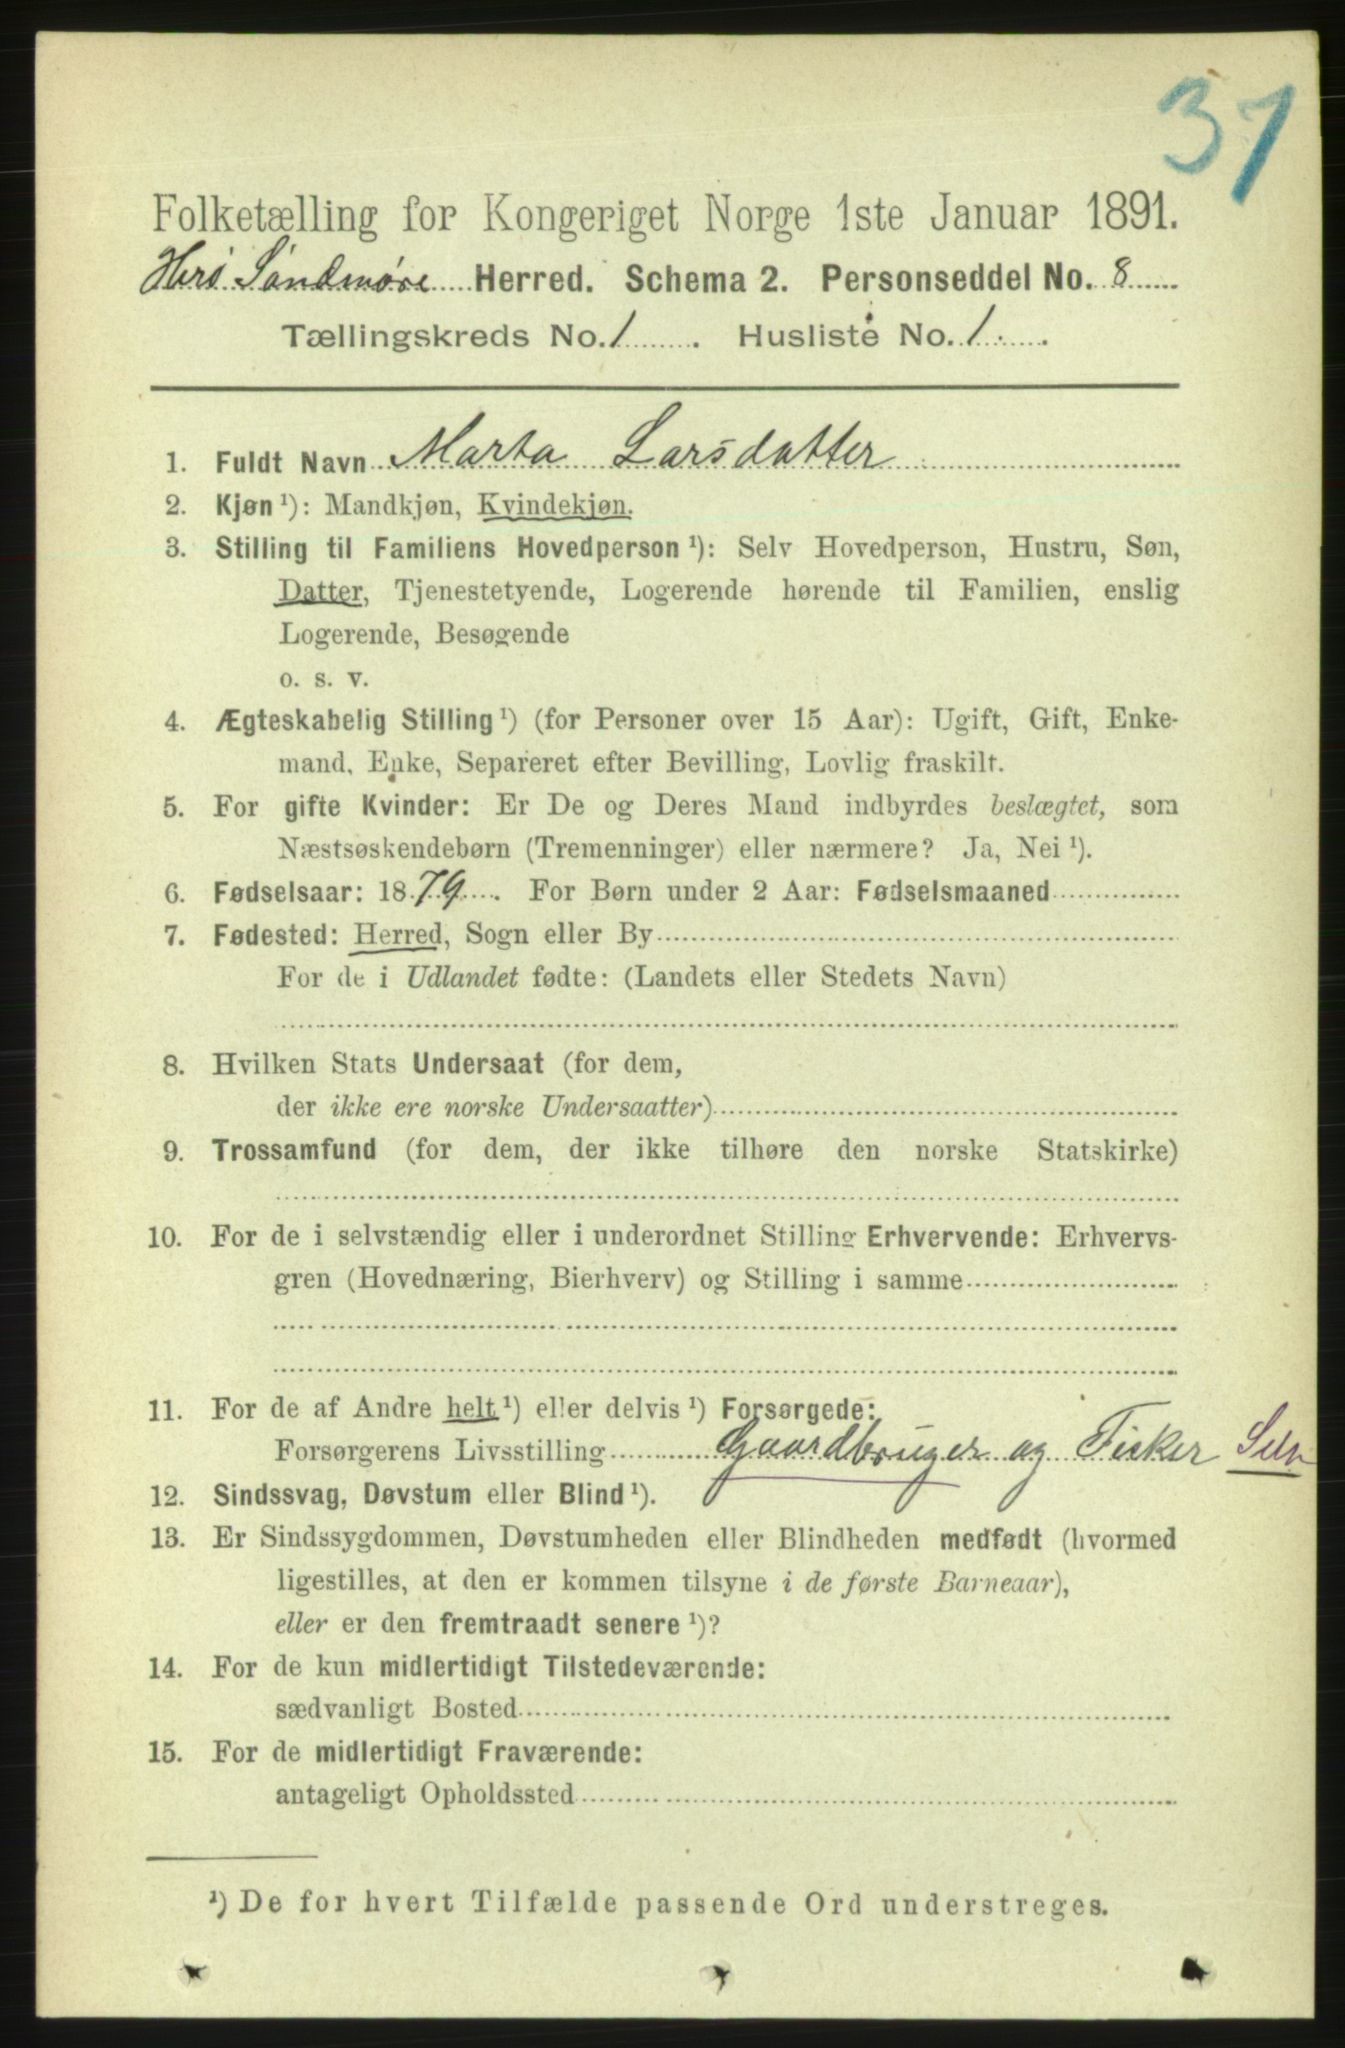 37
Folketælling for Kongeriget Norge 1ste Januar 1891.
Herø Søndmøre Herred. Schema 2. Personseddel No. 8
Tællingskreds No. 1. Husliste No. 1.
1. Fuldt Navn Marta Larsdatter
2. Kjøn¹): Mandkjøn, Kvindekjøn.
3. Stilling til Familiens Hovedperson¹): Selv Hovedperson, Hustru, Søn,
Datter, Tjenestetyende, Logerende hørende til Familien, enslig
Logerende, Besøgende
o. s. v.
4. Ægteskabelig Stilling¹) (for Personer over 15 Aar): Ugift, Gift, Enke-
mand, Enke, Separeret efter Bevilling, Lovlig fraskilt.
5. For gifte Kvinder: Er De og Deres Mand indbyrdes beslægtet, som
Næstsøskendebørn (Tremenninger) eller nærmere? Ja, Nei¹).
6. Fødselsaar: 1879. For Børn under 2 Aar: Fødselsmaaned
7. Fødested: Herred, Sogn eller By
For de i Udlandet fødte: (Landets eller Stedets Navn)
8. Hvilken Stats Undersaat (for dem,
der ikke ere norske Undersaatter)
9. Trossamfund (for dem, der ikke tilhøre den norske Statskirke)
10. For de i selvstændig eller i underordnet Stilling Erhvervende: Erhvervs-
gren (Hovednæring, Bierhverv) og Stilling i samme
11. For de af Andre helt¹) eller delvis¹) Forsørgede:
Forsørgerens Livsstilling Gaardbruger og Fisker Selv
12. Sindssvag, Døvstum eller Blind¹).
13. Er Sindssygdommen, Døvstumheden eller Blindheden medfødt (hvormed
ligestilles, at den er kommen tilsyne i de første Barneaar),
eller er den fremtraadt senere¹)?
14. For de kun midlertidigt Tilstedeværende:
sædvanligt Bosted
15. For de midlertidigt Fraværende:
antageligt Opholdssted
¹) De for hvert Tilfælde passende Ord understreges.